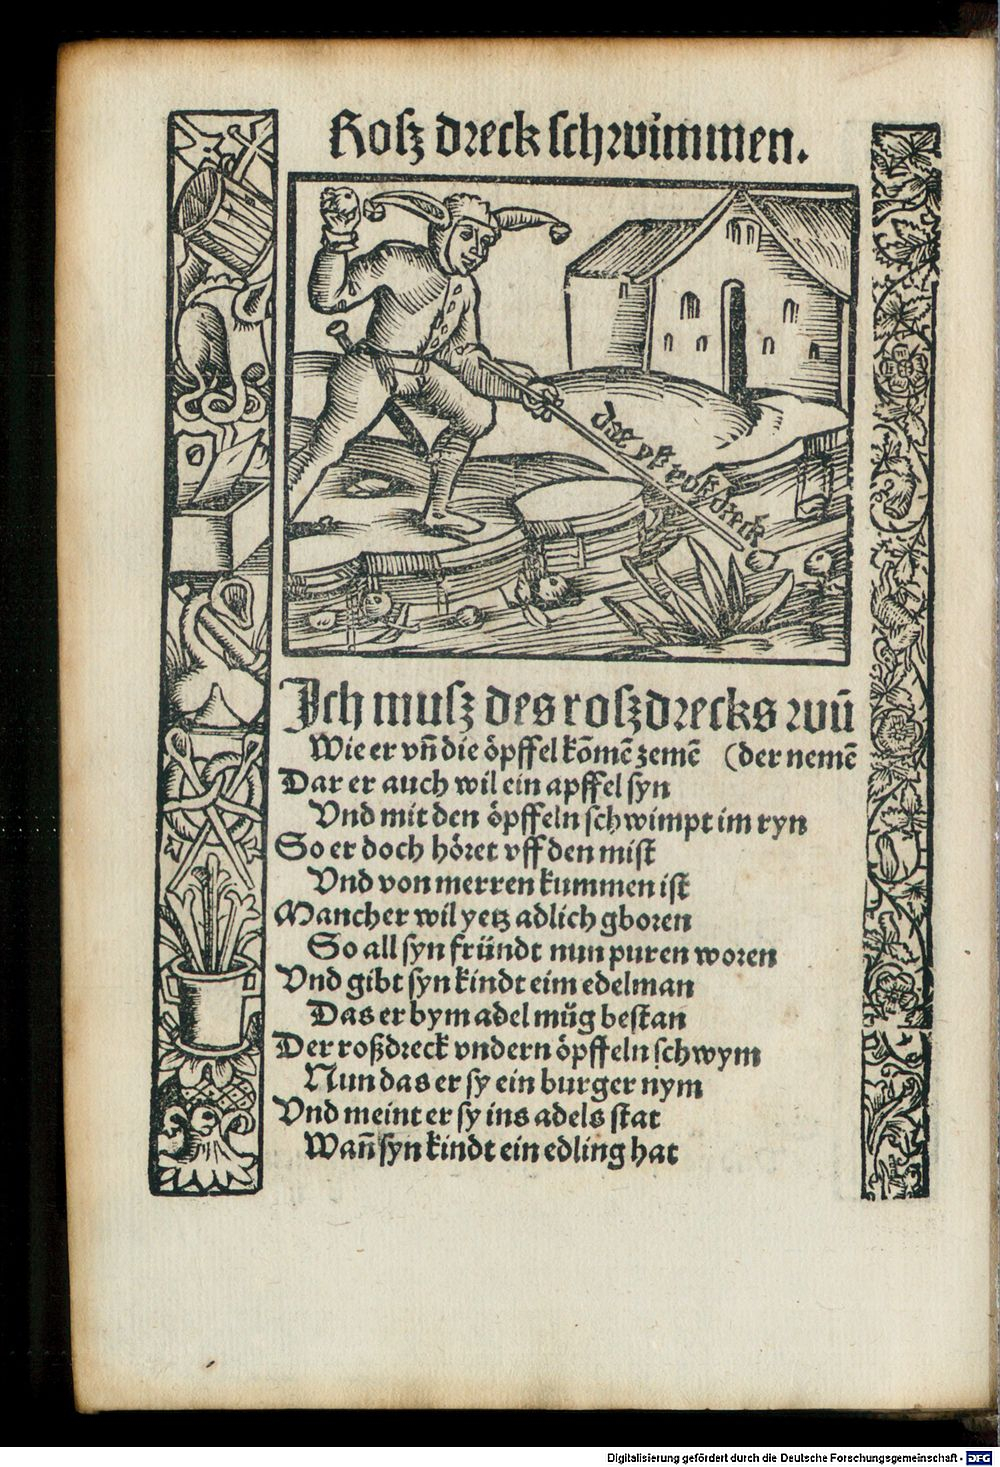 Rosz dreck schwimmen.
das yst roßdreck
Ich musz des roszdrecks wū
Wie er vn̄ die öpffel kōmē zemē (der nemē
Dar er auch wil ein apffel syn
Vnd mit den öpffeln schwimpt im ryn
So er doch höret vff den mist
Vnd von merren kummen ist
Mancher wil yetz adlich gboren
So all syn fründt nun puren woren
Vnd gibt syn kindt eim edelman
Das er bym adel müg bestan
Der roßdreck vndern öpffeln schwym
Nun das er sy ein burger nym
Vnd meint er sy ins adels stat
Wan̄ syn kindt ein edling hat
Digitalisierung gefördert durch die Deutsche Forschungsgemeinschaft - DFG